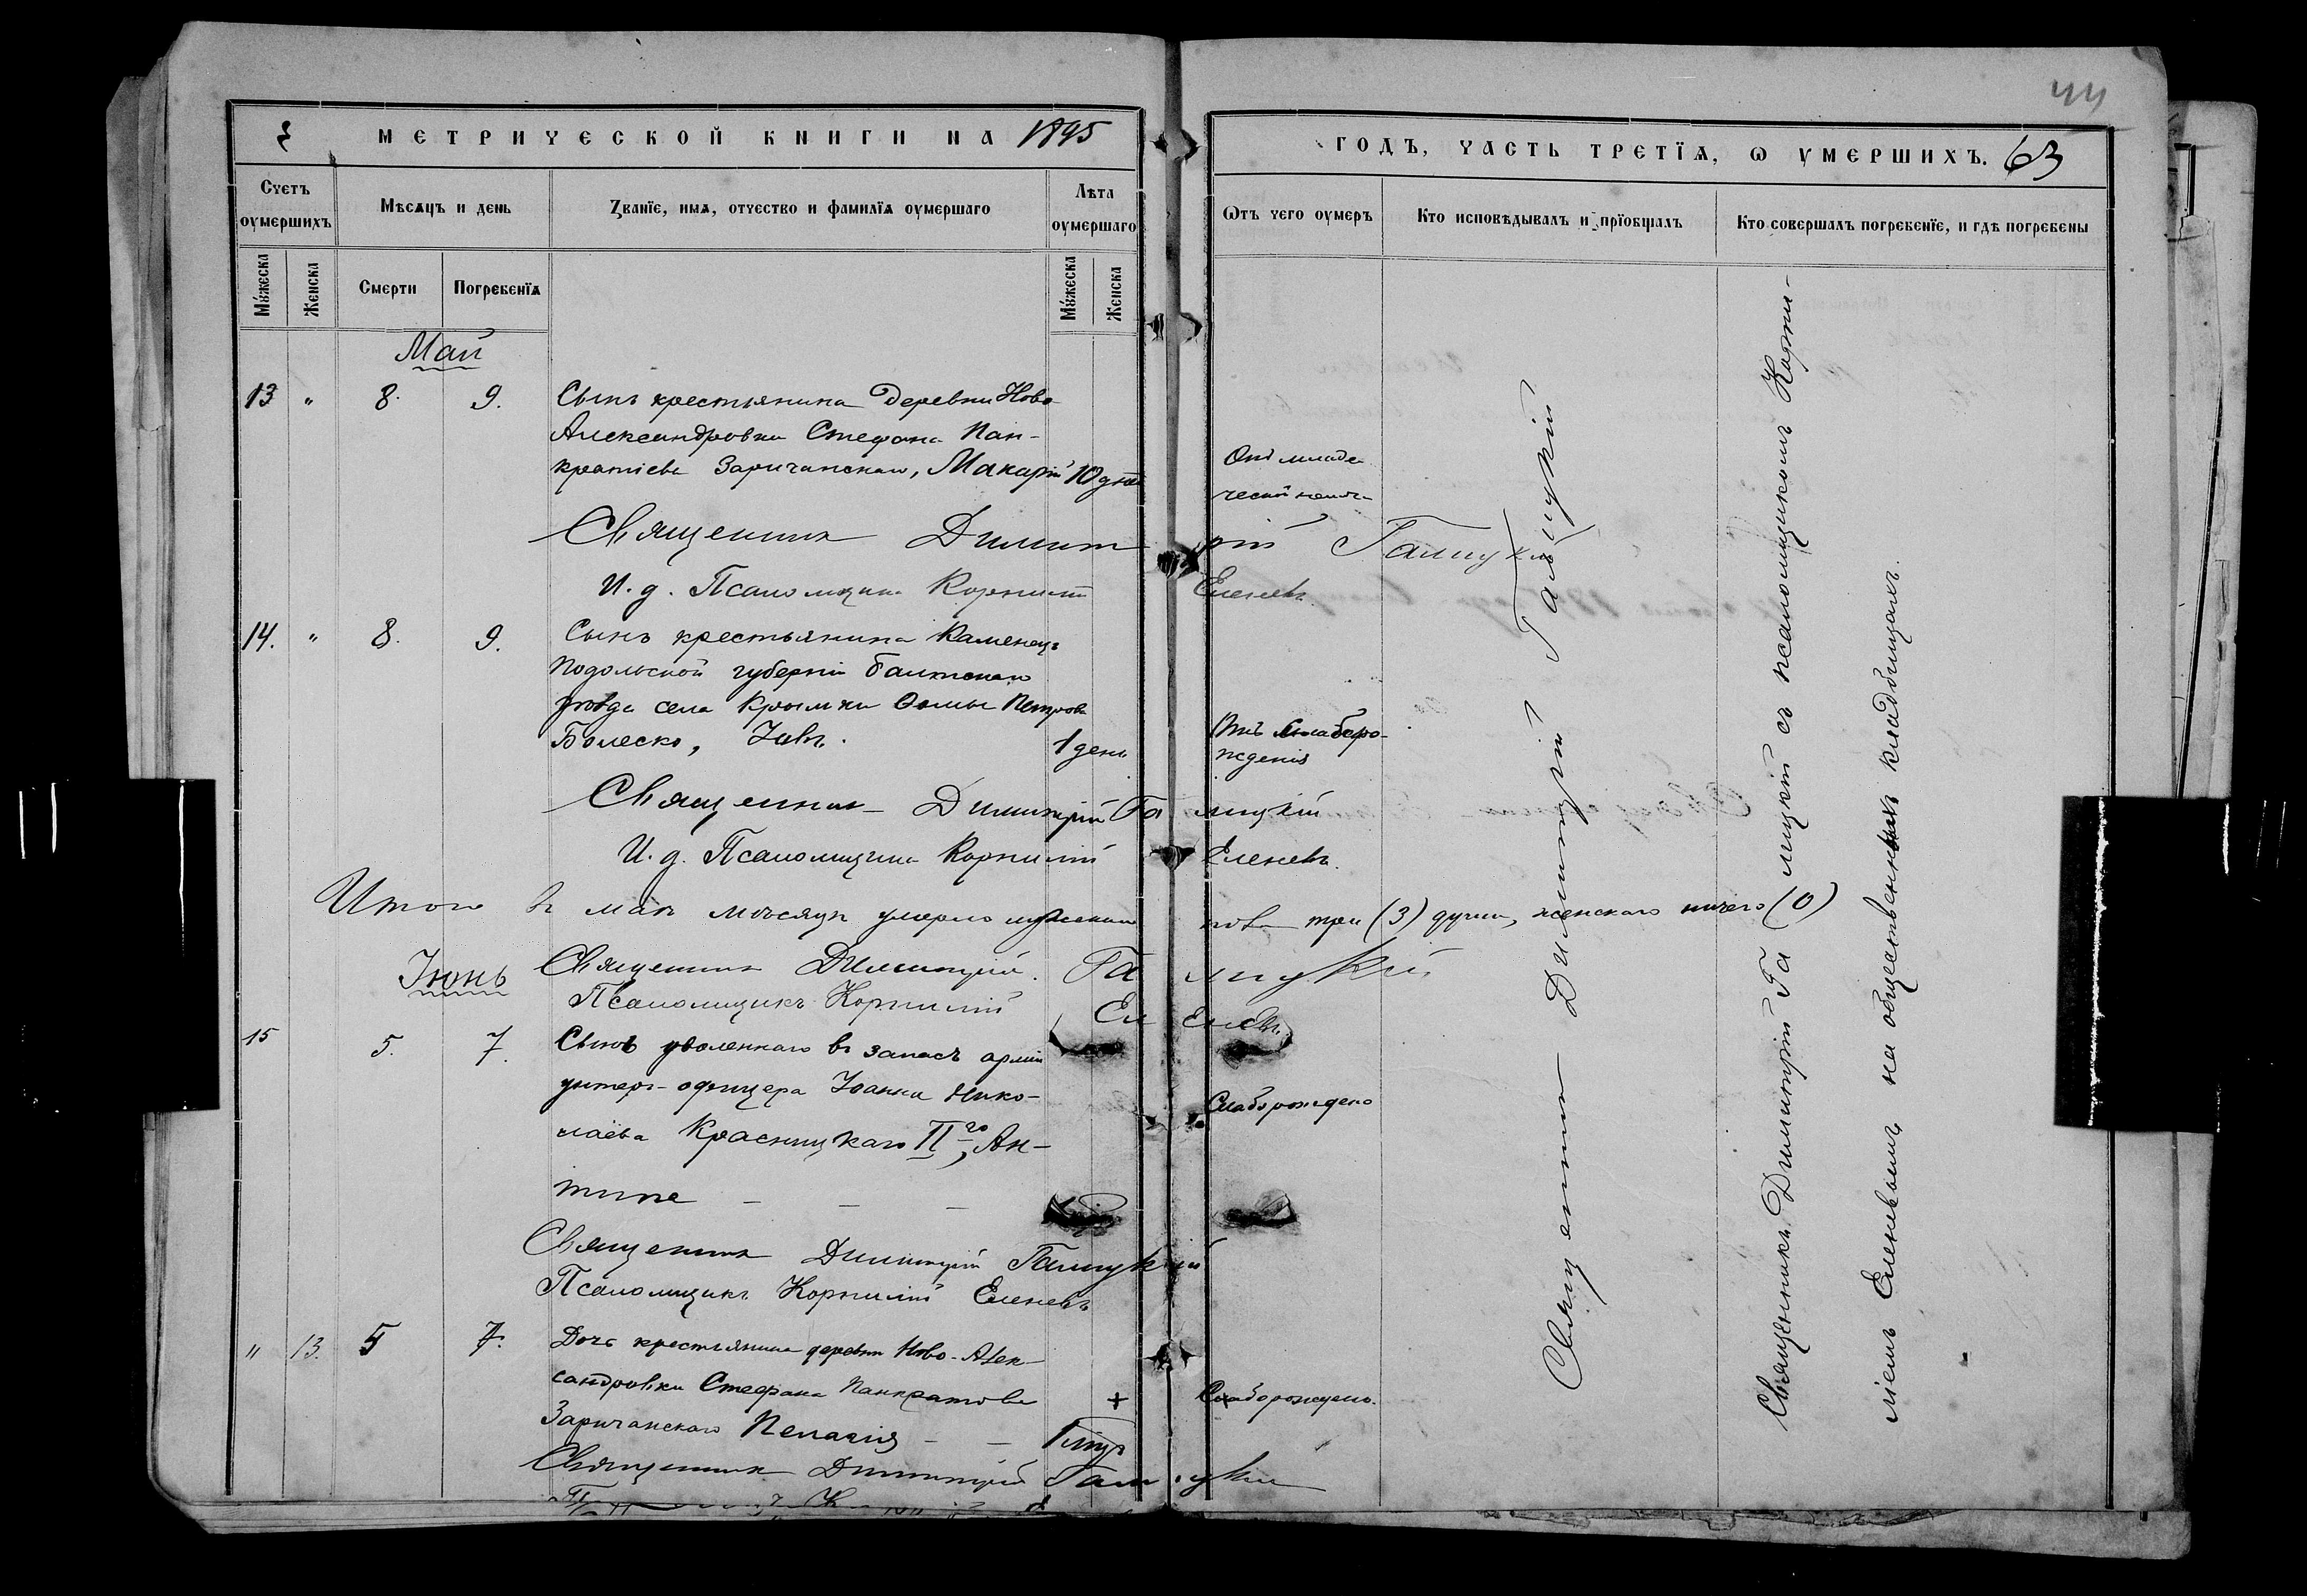 44
МЕТРИЧЕСКОЙ КНИГИ НА 1895
ГОДЪ, ЧАСТЬ ТРЕТІѦ, Ѡ УМЕРШИХЪ. 63
Счетъ оумершихъ
Мѣсѧцъ и день
Званїе, имѧ, отчество и фамилїѧ оумершаго
Лѣта оумершаго
Ѿтъ чего оумеръ
Кто исповѣдывалъ и прїобщалъ
Кто совершалъ погребенїе, и гдѣ погребены
Мꙋжеска
Женска
Смерти
Погребенїѧ
Мꙋжеска
Женска
Май
13 " 8. 9. Сынъ крестьянина деревни Ново-
Александровки Стефана Пан-
кратіева Заричанскаго, Макарій 10 дней
Отъ младе
ческой
Священникъ Димитрій Галицкій
И. д. Псаломщика Корнилій Еленевъ
14. " 8. 9. Сынъ крестьянина Каменецъ
Подольской губерніи Балтскаго
уѣзда села Крымки Ѳомы Петрова
Болеско, Іовъ. 1 день
Отъ слаборо-
жденія
Священникъ Димитрій Галицкій
И. д. Псаломщика Корнилій Еленевъ.
Итого въ маѣ мѣсяцѣ умерло мужеска
пола три (3) души, женскаго ничего (0)
Священникъ Димитрій Галицкій
Іюнь
Псаломщикъ Корнилій Еленевъ.
15 5. 7. Сынъ уволеннаго въ запасъ арміи
унтеръ-офицера Іоанна Нико-
лаева Красницкаго II го, Ан-
типа
Слаборождено
Священникъ Димитрій Галицкій
Псаломщикъ Корнилій Еленевъ
" 13. 5 7. Дочь крестьянина деревни Ново-Алек-
сандровки Стефана Панкратова
Заричанскаго Пелагія
+ Слаборожден.
Священникъ Димитрій Галицкій
Священникъ Димитрій Галицкій
Священникъ Димитрій Галицкій съ псаломщикомъ Корни-
ліемъ Еленевымъ, на общественныхъ кладбищахъ.